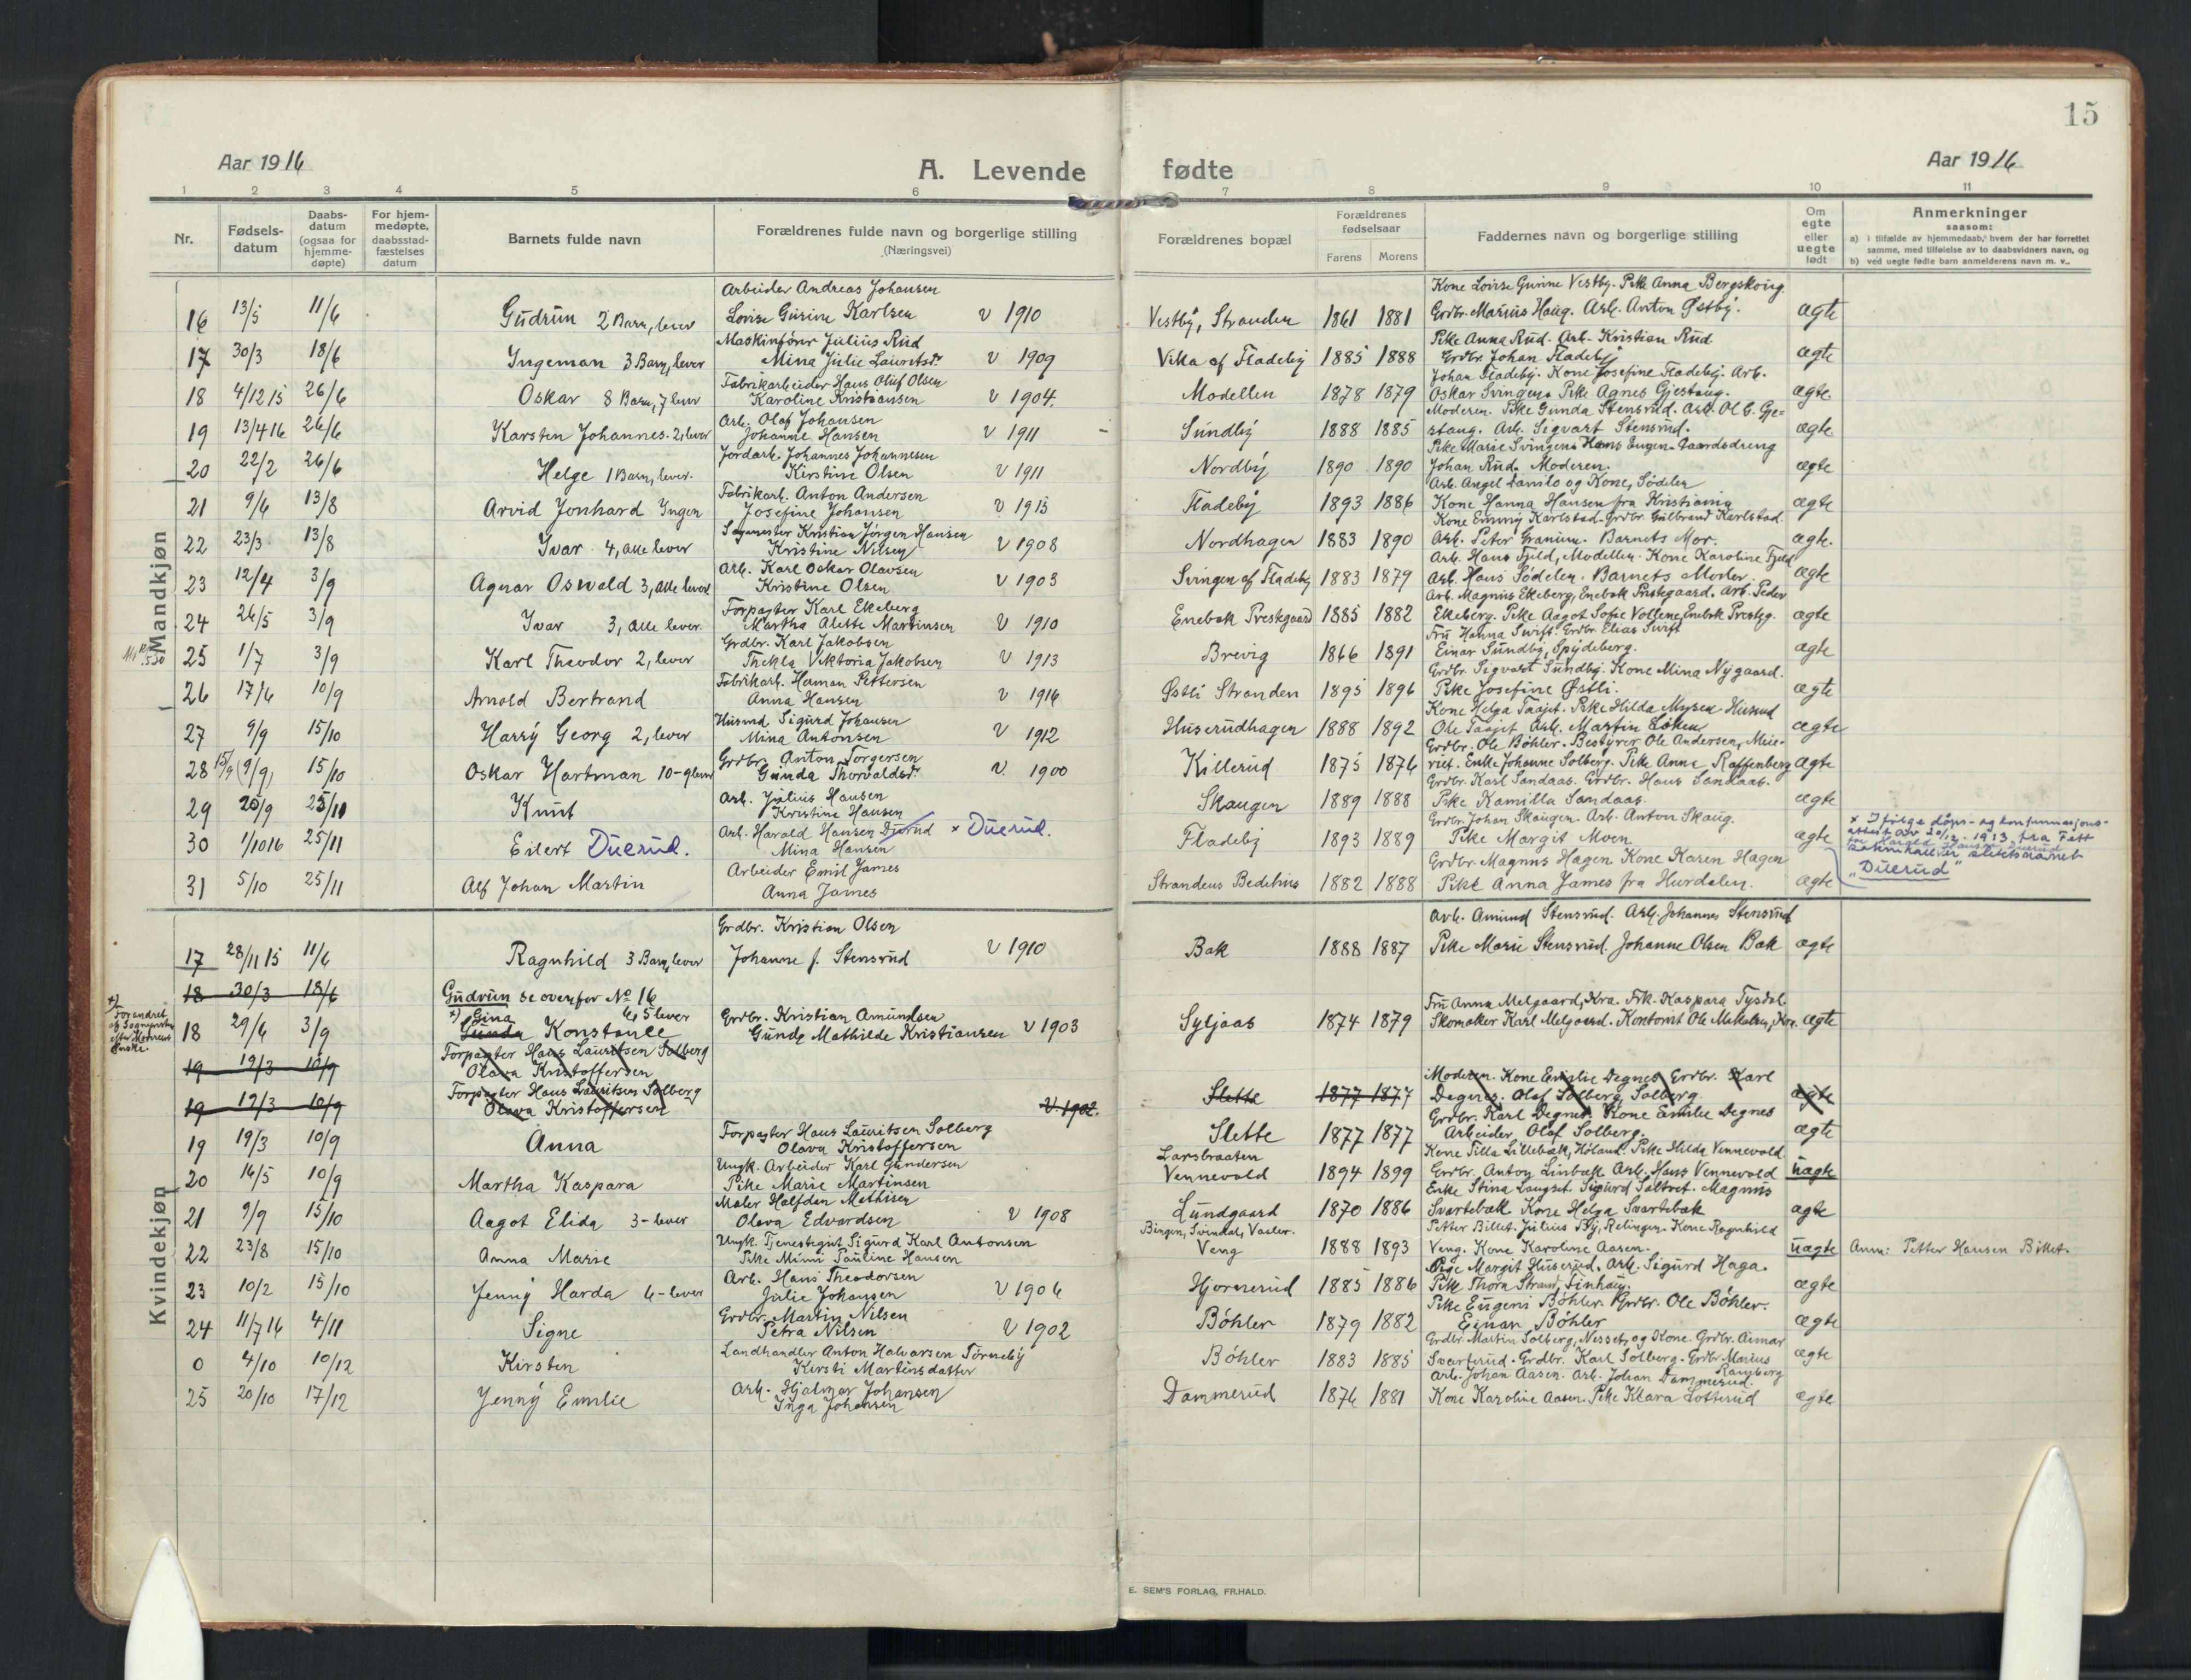 15
Aar 1916
A. Levende fødte
Aar 1916
1 2 3 4 5 6 7 8 9 10 11
Nr.
Fødsels-datum
Daabs-datum (ogsaa for hjemme-døpte)
For hjem-medøpte, daabsstad-fæstelses datum
Barnets fulde navn
Forældrenes fulde navn og borgerlige stilling (Næringsvei)
Forældrenes bopæl
Forældrenes fødselsaar
Farens Morens
Faddernes navn og borgerlige stilling
Om egte eller uegte født
Anmerkninger
saasom:
a) i tilfælde av hjemmedaab, hvem der har forrettet samme, med tilføielse av to daabsvidners navn, og
b) ved uegte fødte barn anmelderens navn m. v..
Mandkjøn
Arbeider Andreas Johansen
Kone Lovise Gurine Vestby. Pike Anna Bergskoug
16 13/5 11/6 Gudrun 2 Barn, lever Lovise Gurine Karlsen v 1910 Vestby, Stranden 1861 1881 Grdbr. Marius Haug. Arb. Anton Østby. ægte
Maskinfører Julius Rud
Pike Anna Rud. Arb. Kristian Rud
17 30/3 18/6 Ingeman 3 Barn, lever Mina Julie Lauritsdr v 1909 Vika af Fladeby 1885 1888 Grdbr. Johan Fladeby ægte
Fabrikarbeider Hans Oluf Olsen
Johan Fladeby. Kone Josefine Fladeby. Arb.
18 4/12 15 26/6 Oskar 8 Barn, 7 lever Karoline Kristiansen v 1904. Modellen 1878 1879 Oskar Svingen. Pike Agnes Gjestaug. ægte
Arb. Olaf Johansen
Moderen. Pike Gunda Stensrud. Arb. Ol C. Gje=
19 13/4 16 26/6 Karsten Johannes. 2, lever Johanne Hansen v 1911 Sundby 1888 1885 staug. Arb. Sigvart Stensrud. ægte
Jordarb. Johannes Johannesen
Pike Marie Svingen. Hans Engen. Gaardsdreng
20 22/2 26/6 Helge 1 Barn, lever. Kirstine Olsen v 1911 Nordby 1890 1890 Johan Rud. Moderen. ægte
Fabrikarb. Anton Andersen
21 9/6 13/8 Arvid Jonhard Ingen Josefine Johansen v 1915 Fladeby 1893 1886 Kone Hanna Hansen fra Kristiania ægte
Sagmester Kristian Jørgen Hansen
Kone Emmy Karlstad. Grdbr. Gulbrand Karlstad.
22 23/3 13/8 Ivar 4, alle lever Kristine Nilsen v 1908 Nordhagen 1883 1890 Arb. Peter Granum. Barnets Mor. ægte.
Arb. Karl Oskar Olavsen
Arb. Hans Fjeld, Modellen. Kone Karoline Fjeld
23 12/4 3/9 Agnar Oswald 3, alle lever Kristine Olsen v 1903 Svingen af Fladeby 1883 1879 Arb. Hans Sødelen. Barnets Moder. ægte
Forpagter Karl Ekeberg
Arb. Magnus Ekeberg, Enebak Prestegaard. Arb. Peder
24 26/5 3/9 Ivar 3, alle lever. Martha Alette Martinsen v 1910 Enebak Prestegaard 1885 1882 Ekeberg. Pike Aagot Sofie Vollene, Enebak Presteg. ægte
Grdbr. Karl Jakobsen
Fru Hanna Swift. Grdbr. Elias Swift
25 1/7 3/9 Karl Theodor 2, lever Thekla Viktoria Jakobsen v 1913 Brevig 1866 1891 Einar Sundby, Spydeberg. ægte
Fabrikarb. Herman Pettersen
Grdbr. Sigvart Sundby. Kone Mina Nygaard.
26 17/6 10/9 Arnold Bertrand Anna Hansen v 1916 Østli Stranden 1895 1896 Pike Josefine Østli. ægte
Husmd Sigurd Johansen
27 9/9 15/10 Harry Georg 2, lever Mina Antonsen v 1912 Huserudhagen 1888 1892 Ole Taajet Arb. Martin Løken ægte
Grdbr. Anton Torgersen
Grdbr. Ole Bøhler. Bestyrer Ole Andersen, Meie-
28 15/9 (9/9) 15/10 Oskar Hartman 10-9 lever Gunda Thorvaldsdr v. 1900 Killerud 1875 1876 riet. Enke Johanne Solberg. Pike Anna Raffenberg ægte
Arb. Julius Hansen
Grdbr. Karl Sandaas. Grdbr. Hans Sandaas.
29 25/11 Knut Kristine Hansen Skaugen 1889 1888 Pike Kamilla Sandaas. ægte
Arb. Harald Hansen Djurud × Duerud.
Grdbr. Johan Skaugen. Arb. Anton Skaug.
30 1/10 16 25/11 Eilert Duerud. Mina Hansen Fladeby 1893 1889 Pike Margit Moen ægte
× Ifølge døps- og konfirmasjons-
"Duerud"
Arbeider Emil James
Grdbr. Magnus Hagen Kone Karen Hagen
31 5/10 25/11 Alf Johan Martin Anna James Strandens Bedehus 1882 1888 Pike Anna James fra Hurdalen. ægte
Kvindekjøn
Grdbr. Kristian Olsen
Arb. Amund Stensrud. Arb. Johannes Stensrud
17 28/11 15 11/6 Ragnhild 3 Barn, lever Johanne f. Stensrud v 1910 Bak 1888 1887 Pike Marie Stensrud. Johanne Olsen Bak ægte
18 30/3 18/6 Gudrun se ovenfor No 16
×) Forandret af Sognepresten efter Moderens Ønske.
×) Gina 6, 5 lever Grdbr. Kristian Amundsen
Fru Anna Melgaard, Kra. Frk. Kaspara Tysdal.
18 29/6 3/9 Gunda Konstance Gunda Mathilde Kristiansen v 1903 Syljaas 1874 1879 Skomaker Karl Melgaard. Kontorist Ole Mikalsen, Kra. ægte
19 19/3 10/9 Forpagter Hans Lauritsen Solberg
Olava Kristoffersen
Moderen. Kone Emilie Degnes Grdbr. Karl
19 19/3 10/9 Forpagter Hans Lauritsen Solberg
Olava Kristoffersen v. 1902. Slette 1877 1877 Degnes. Olaf Solberg, Solberg. ægte
Forpagter Hans Lauritsen Solberg
Grdbr. Karl Degnes. Kone Emilie Degnes
19 19/3 10/9 Anna Olava Kristoffersen Slette 1877 1877 Arbeider Olaf Solberg. ægte
Ungk. Arbeider Karl Gundersen Larsbraaten
Kone Tilla Lillebæk, Høland. Pike Hilda Vennevold.
20 16/5 10/9 Martha Kaspara Pike Marie Martinsen Vennevold 1894 1899 Grdbr. Anton Linbæk Arb. Hans Vennevold uægte
Maler Halfdan Mathisen
21 9/9 15/10 Aagot Elida 3-lever Olava Edvardsen v 1908 Lundgaard 1870 1886 Svartebæk Kone Helga Svartebæk ægte
Ungk. Tjenestegut Sigurd Karl Antonsen Bingen, Svindal, Vaaler.
Petter Billet. Julius By, Rælingen. Kone Ragnhild
22 23/8 15/10 Anna Marie Pike Mimi Pauline Hansen Veng 1888 1893 Veng. Kone Karoline Aasen. uægte Anm: Petter Hansen Billet.
Arb. Hans Theodorsen
Pige Margit Huserud. Arb. Sigurd Haga.
23 10/2 15/10 Jenny Harda 6-lever Julie Johansen v 1906 Hjornerud 1885 1886 Pike Thora Strand, Linhaug. ægte
Grdbr. Martin Nilsen
Pike Eugeni Bøhler. Grdbr. Ole Bøhler.
24 11/7 16 4/11 Signe Petra Nilsen v 1902 Bøhler 1879 1882 Einar Bøhler ægte
Landhandler Anton Halvorsen Torneby
Grdbr. Martin Solberg, Nesset, og Kone. Grdbr. Aimar
0 4/10 10/12 Kirsten Kirsti Martinsdatter Bøhler 1883 1885 Svarterud. Grdbr. Karl Solberg. Grdbr. Marius Ramberg ægte
Arb. Hjalmar Johansen
Arb. Johan Aasen. Arb. Johan Dammerud.
25 20/10 17/12 Jenny Emilie Inga Johansen Dammerud 1876 1881 Kone Karoline Aasen. Pike Klara Lotterud ægte
E. SEM'S FORLAG, FR.HALD.